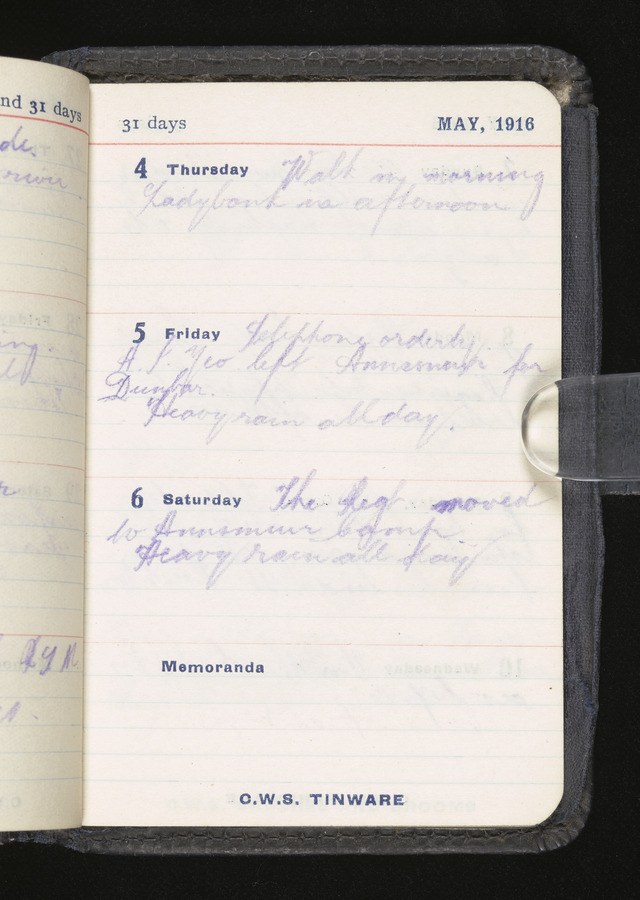 nd 31 days
31 days MAY, 1916
4 Thursday Walk in morning
Ladybank in afternoon
5 Friday Telephone orderly.
A. S. Yeo left Annsmuir for
Dunbar.
Heavy rain all day.
6 Saturday The Regt moved
to Annsmuir camp.
Heavy rain all day
Memoranda
C.W.S. TINWARE